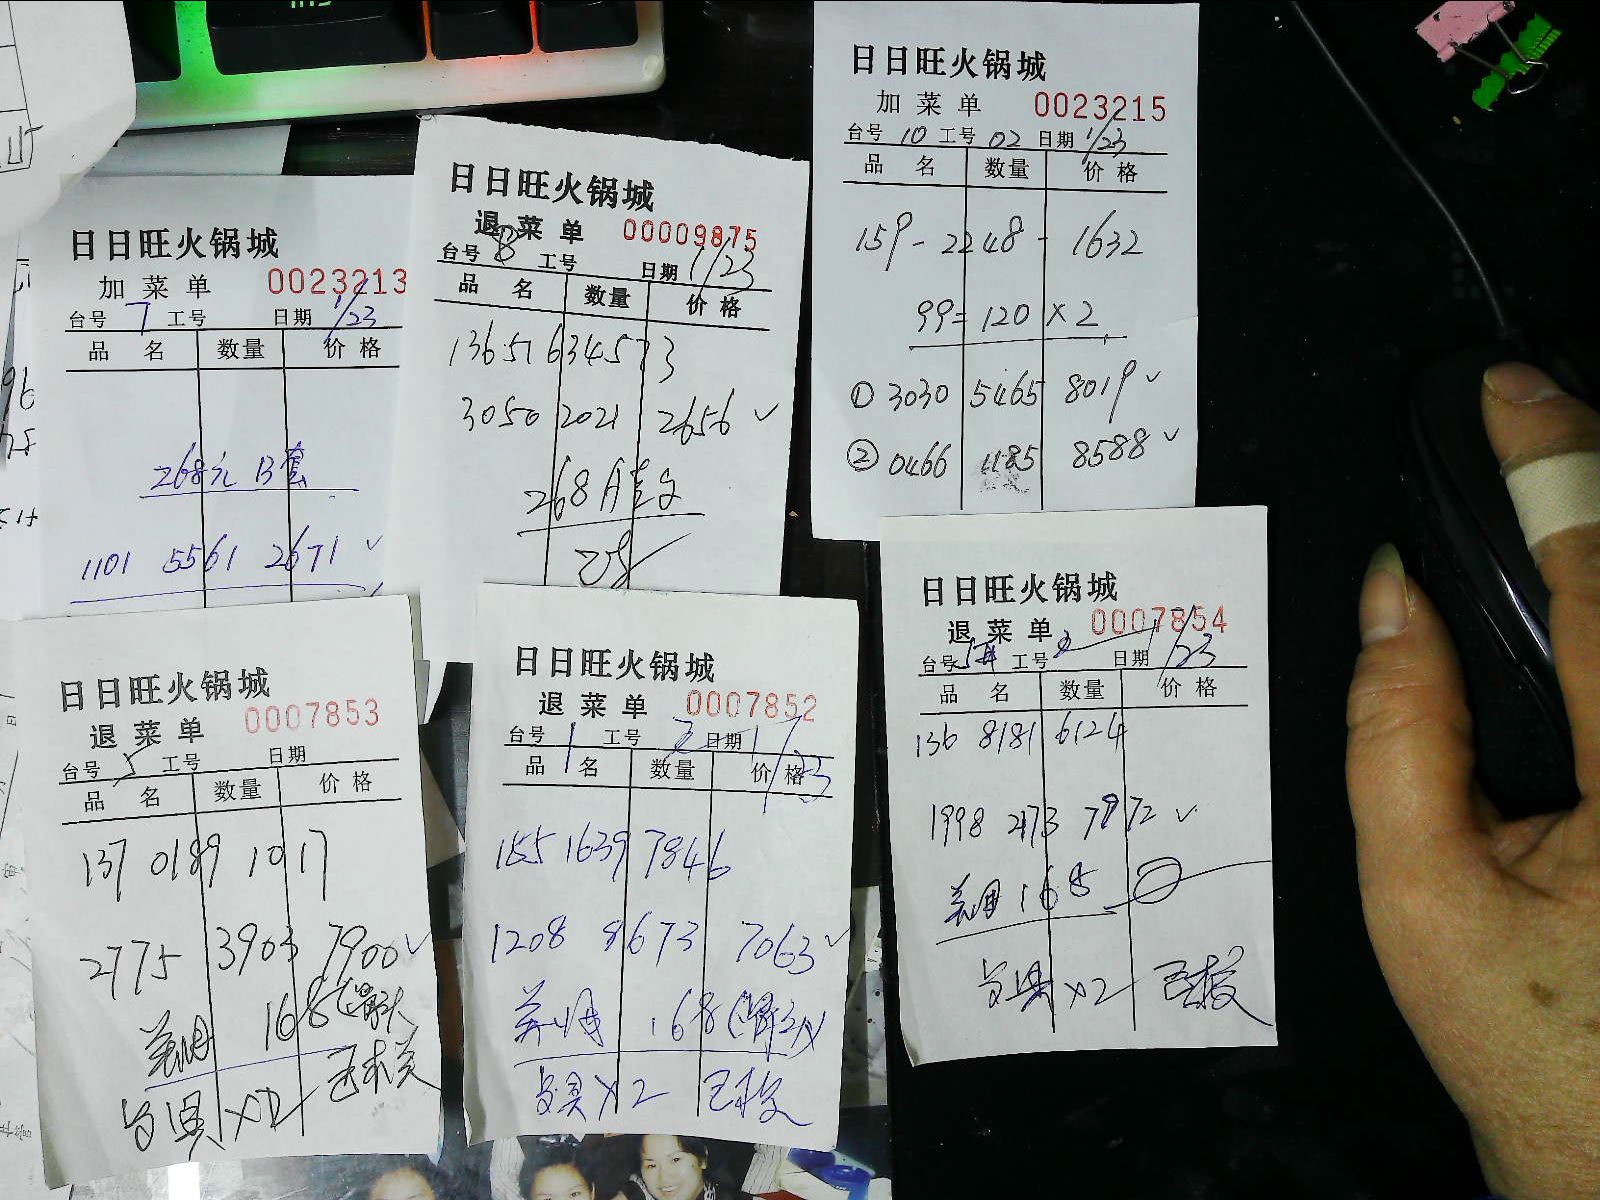 日日旺火锅城
加菜单 0023213
台号 7 工号 日期 1/23
品名 数量 价格
268元 B套
1101 5561 2671 ✓
日日旺火锅城
退菜单 00009875
台号 8 工号 日期 1/23
品名 数量 价格
13651634573
3050 2021 2656 ✓
268A套
日日旺火锅城
加菜单 0023215
台号 10 工号 02 日期 1/23
品名 数量 价格
159-2248-1632
99=120×2
① 3030 5465 8019 ✓
② 0466 1185 8588 ✓
日日旺火锅城
退菜单 0007853
台号 5 工号 日期
品名 数量 价格
137 0189 1017
2775 3903 7900 ✓
美团 168
×2 已核
日日旺火锅城
退菜单 0007852
台号 1 工号 日期 1/23
品名 数量 价格
155 1639 7846
1208 8673 7063 ✓
美团 168
×2 已核
日日旺火锅城
退菜单 0007854
台号 工号 日期 1/23
品名 数量 价格
136 8181 6124
1998 2173 7972 ✓
美团 168
×2 已核